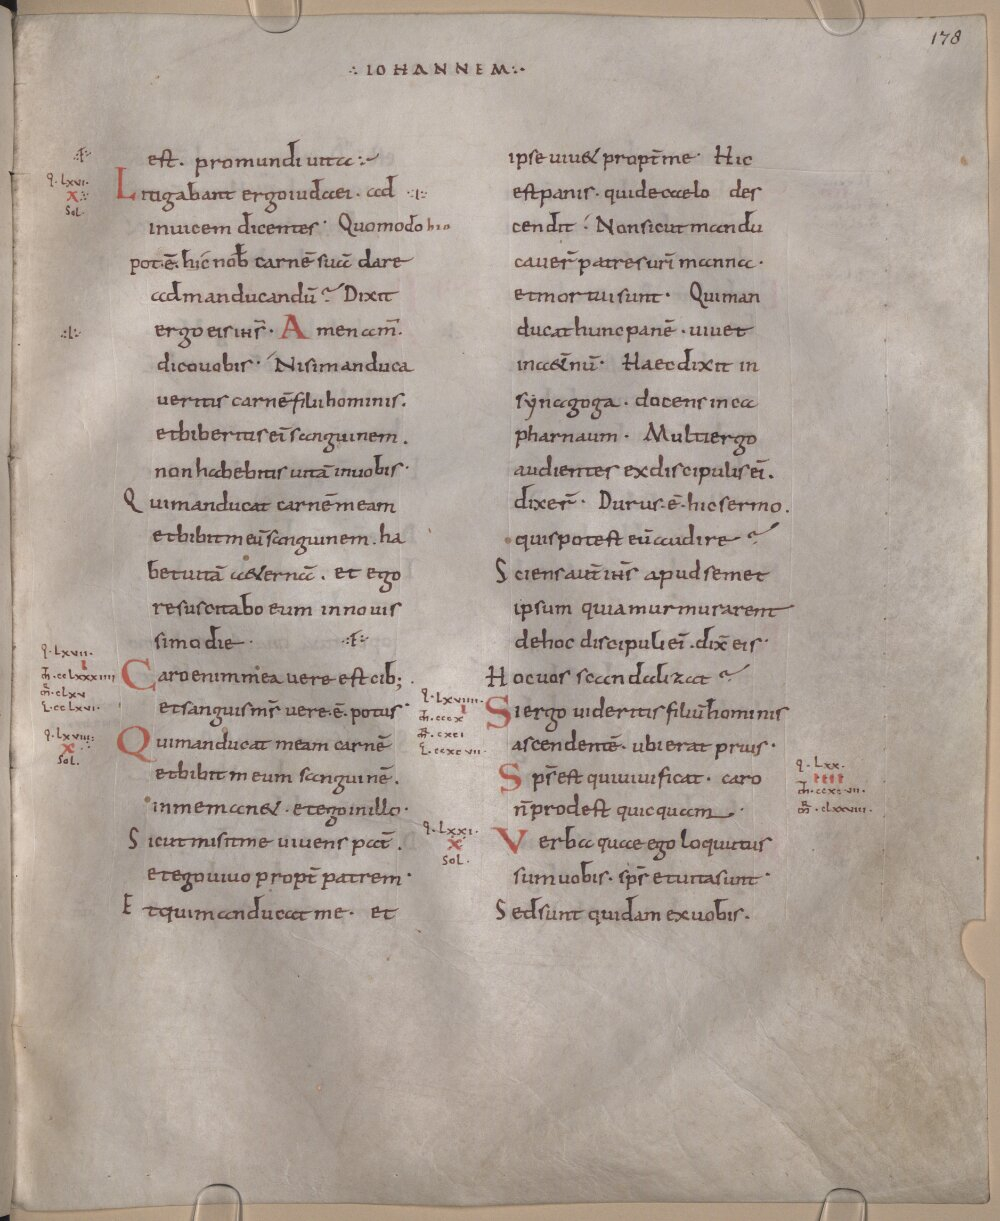 178
∴ IOHANNEM ∴
est. pro mundi uita
Litigabant ergo iudaei. ad
inuicem dicentes. Quomodo hio
pot. ē. hic nob carnē suā dare
ad manducandū? Dixit
ergo eis ihs̄. Amen am̄.
dico uobis. Nisi manduca
ueritis carnē filii hominis.
et biberitis ei᷒ sanguinem.
non habebitis uitā in uobis.
Qui manducat carnē meam
et bibit meū sanguinem. ha
bet uitā aet&ernā. et ego
resuscitabo eum in nouis
simo die.
Caro enim mea vere est cib;
et sanguis m̄s vere. ē. potus.
Qui manducat meam carnē
et bibit meum sanguinē.
in me man&. et ego in illo.
Sicut misit me uiuens pat̄.
et ego uiuo propt̄ patrem.
Et qui manducat me. et
ipse uiu& propt̄ me. Hic
est panis. qui de caelo des
cendit. Non sicut mandu
cauer̄ patres uri̅ manna.
et mortui sunt. Qui man
ducat hunc panē. uiuet
in aet̄nū. Haec dixit in
synagoga. docens in ca
pharnaum. Multi ergo
audientes ex discipulis ei᷒.
dixer̄. Durus. ē. hic sermo.
quis potest eū audire?
Sciens aut̄ ihs̄ apud semet
ipsum quia murmurarent
de hoc discipuli ei᷒. dix̄ eis.
Hoc uos scandalizat?
Si ergo uideritis filiū hominis
ascendentē. ubi erat prius.
Sps̄ est qui uiuificat. caro
n̄ prodest quicquam.
Verba quae ego loquutus
sum uobis. sps̄ et uita sunt.
Sed sunt quidam ex uobis.
q. lxvi.
x
sol.
q. lxvii.
i
m̄. cclxxxiiii
m̄r. clxv
l. cclxvi.
q. lxviii.
x
sol.
q. lxviiii.
i
m̄. cccx
m̄r. cxci
l. ccxcvii.
q. lxxi.
x
sol.
q. lxx.
iiii
m̄. ccxcvii.
m̄r. clxxviii.